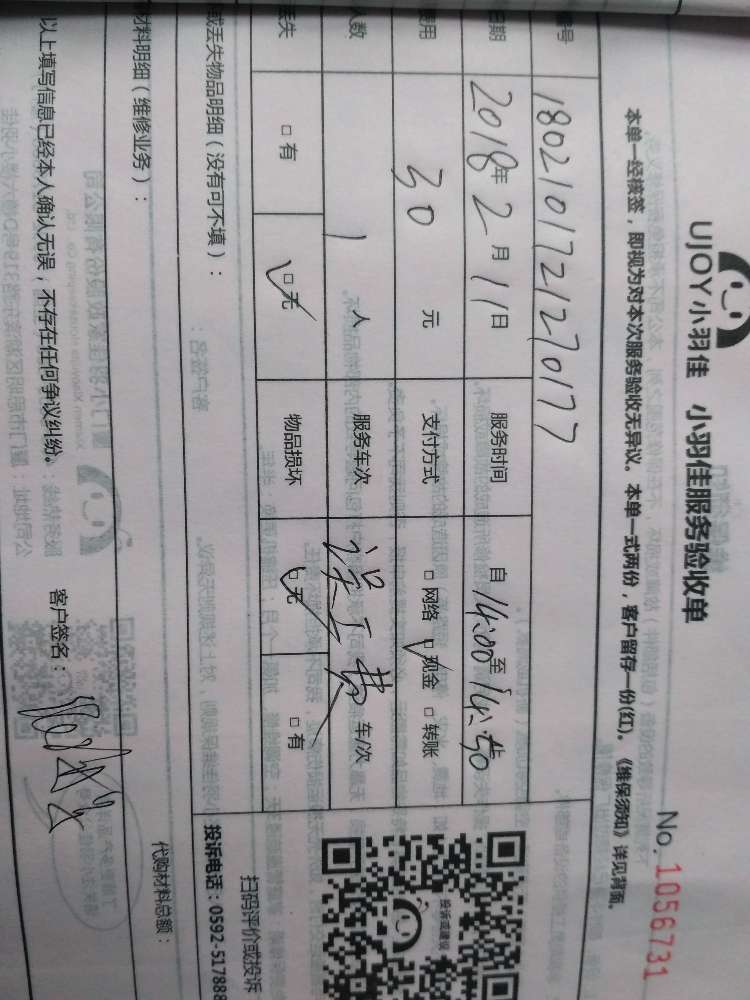 UJOY小羽佳 小羽佳服务验收单
No. 1056731
本单一经核签，即视为对本次服务验收无异议。本单一式两份，客户留存一份(红)。《维保须知》详见背面。
编号 180210172127077
日期 2018年2月11日 服务时间 自14:00至14:50
费用 30元 支付方式 □网络 □现金 □转账
人数 1人 服务车次 误工费 车/次
丢失 □有 □无 物品损坏 □无 □有
或丢失物品明细（没有可不填）：
扫码评价或投诉
投诉电话：0592-517888
投诉或建议
材料明细（维修业务）：
代购材料总额：
以上填写信息已经本人确认无误，不存在任何争议纠纷。 客户签名：